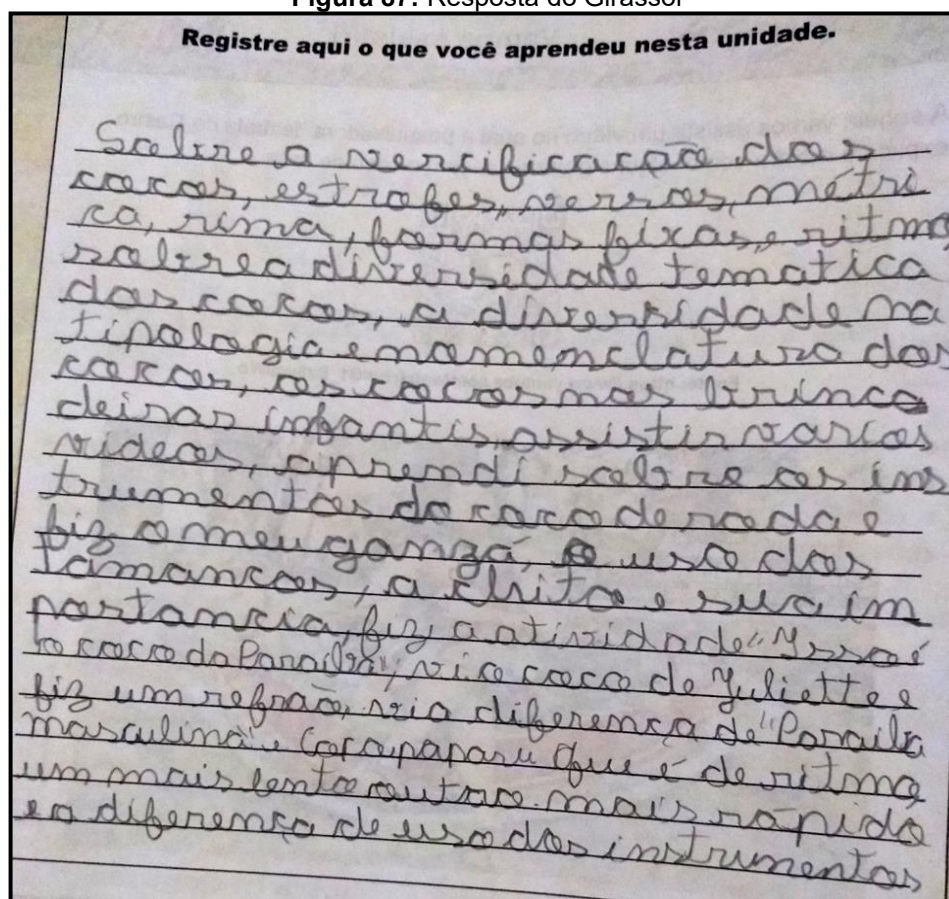 Figura 67: Resposta do Girassol
Registre aqui o que você aprendeu nesta unidade.
Sobre a versificação dos
cocos, estrofes, versos, métri
ca, rima, formas fixas, e ritmo
sobre a diversidade tematica
dos cocos, a diversidade na
tipologia e nomenclatura dos
cocos, os cocos nas brinca
deiras infantis, assistir varios
videos, aprendi sobre os ins
trumentos do coco de roda e
fiz o meu ganzá, o uso dos
tamancos, a e sua im
portancia, fiz a atividade "Isso é
coco da Paraíba", vi o coco de Juliette e
fiz um refrão, vi a diferença de "Paraíba
masculina" e Coco papary que é de ritmo
um mais lento e outro mais rápido
e a diferença de uso dos instrumentos